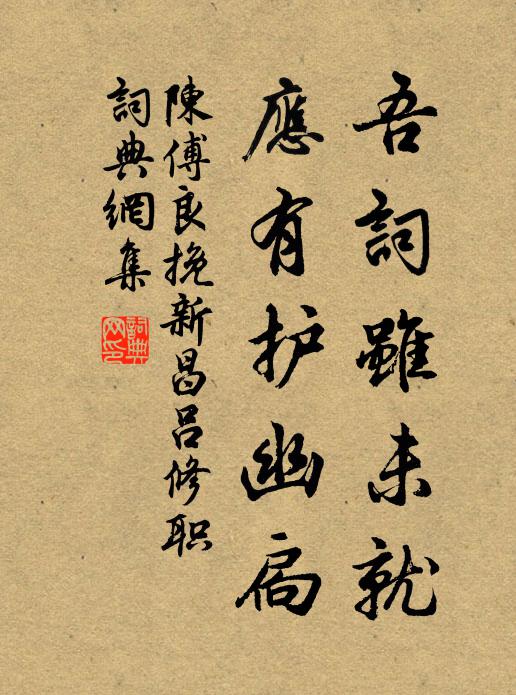 吾詞雖未就
應有护幽扃
陳傅良挽新昌吕修职
詞典網集
詞典网印